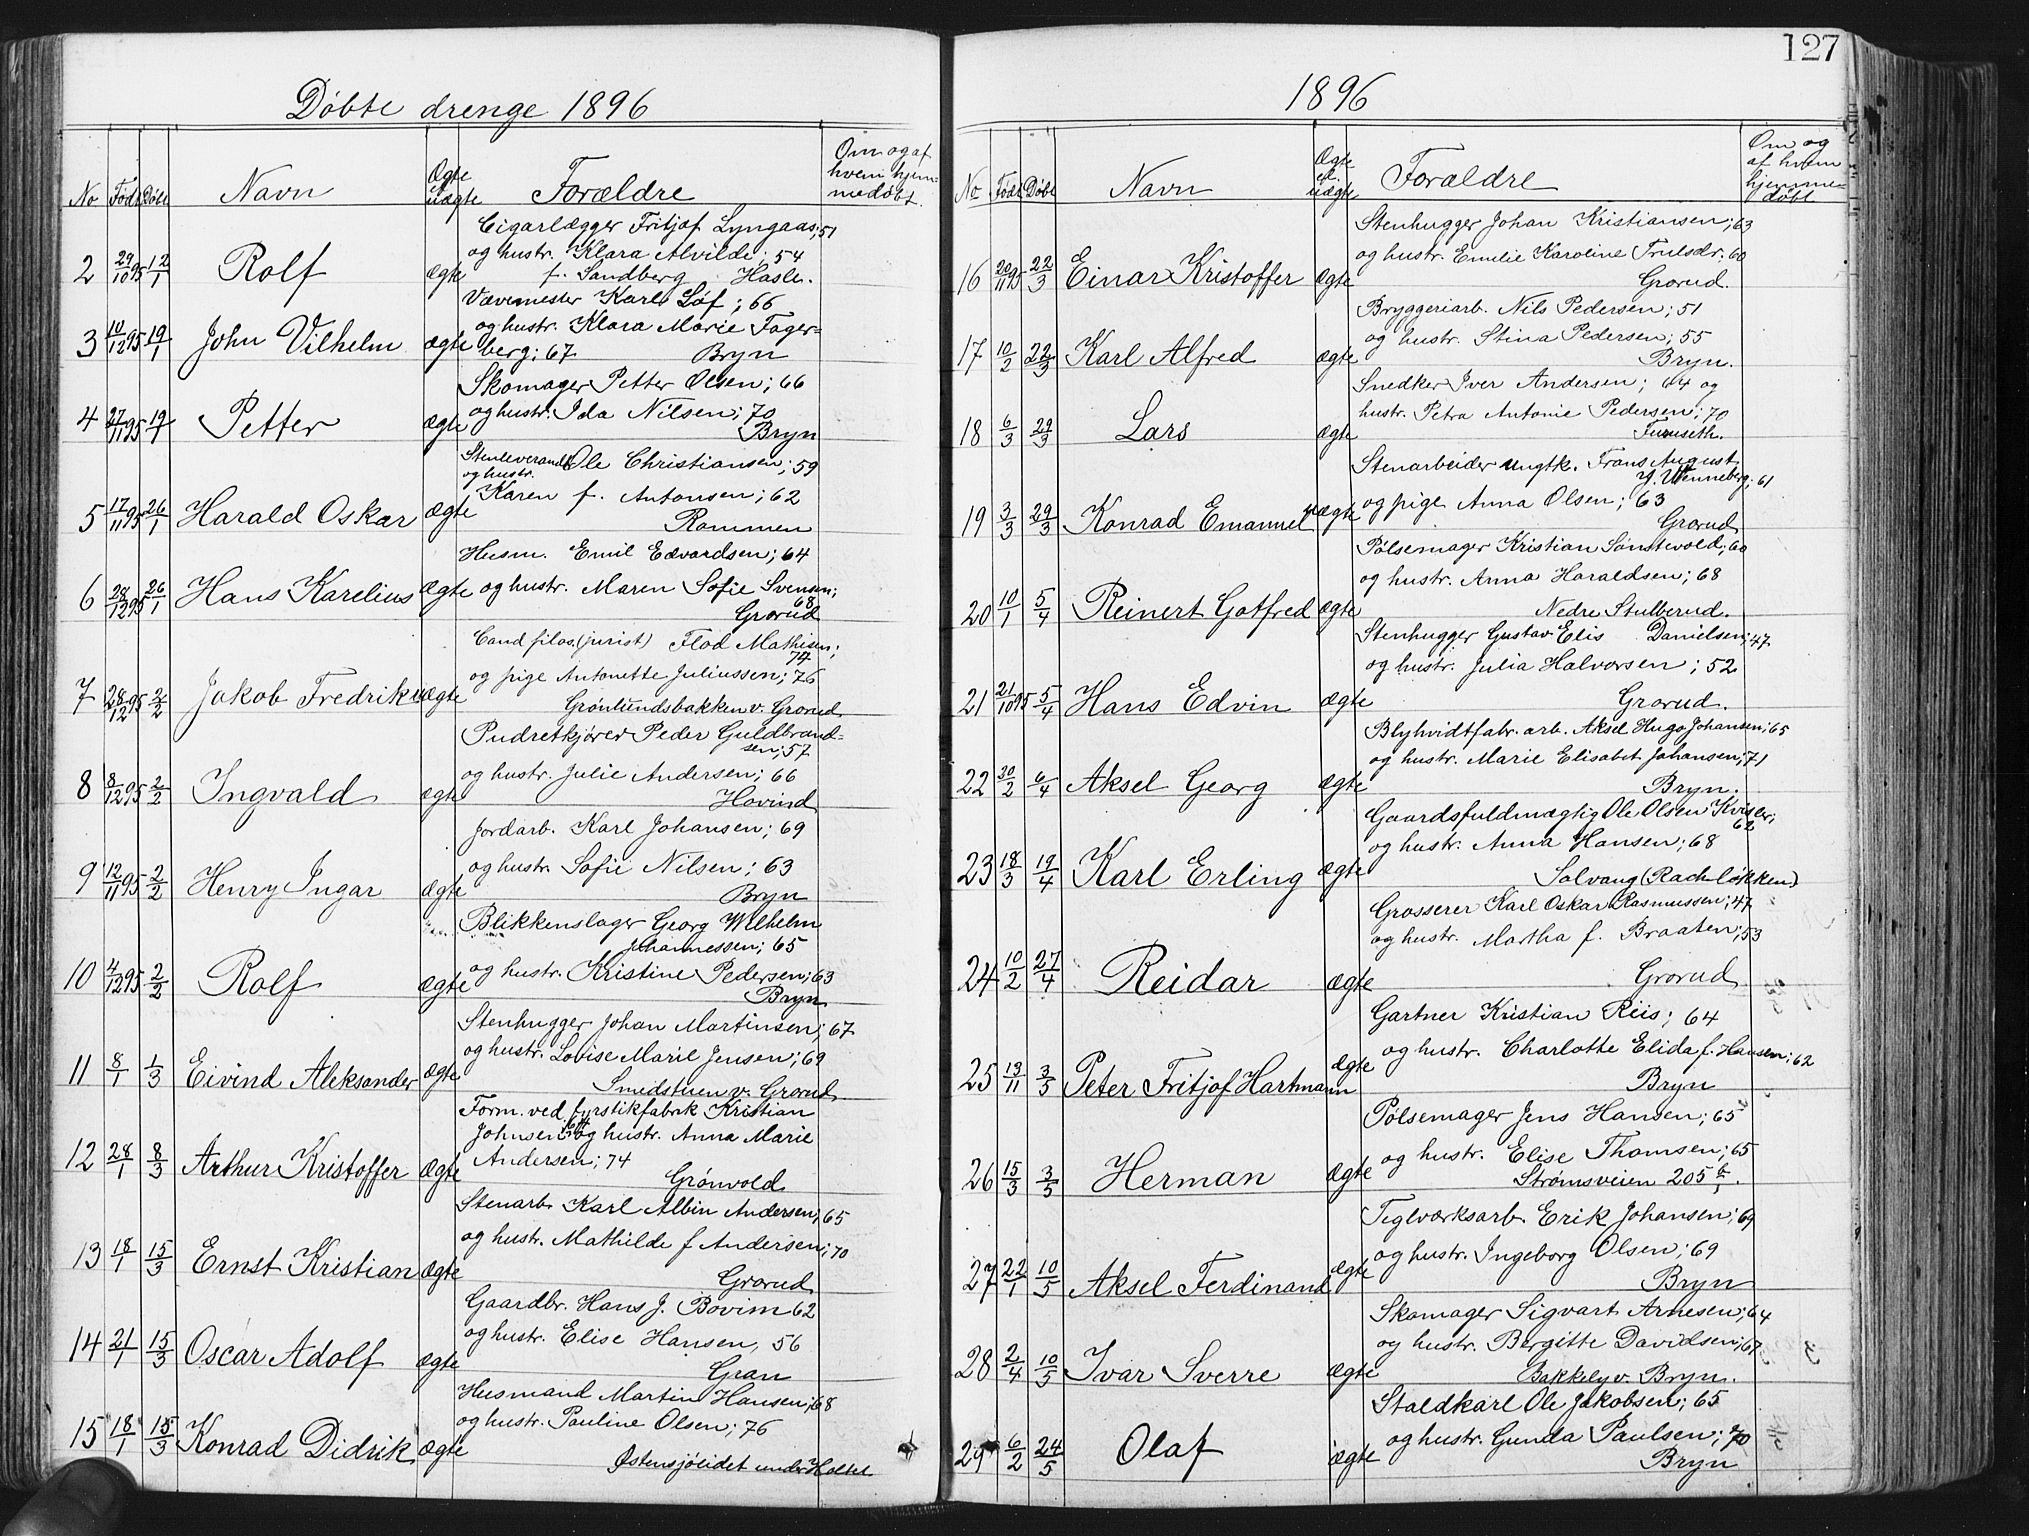 127
Døbte drenge 1896
No Født Døbt Navn Ægte el. uægte Forældre Om og af hvem hjemmedøbt.
Cigarlægger Fritjof Lyngaas; 51
og hustr. Klara Alvilde; 54
2 29/10 95 12/1 Rolf ægte f. Sandberg Hasle.
Vævemester Karl Löf; 66
og hustr. Klara Marie Fager=
3 10/12 95 19/1 John Vilhelm ægte berg; 67 Bryn
Skomager Petter Olsen; 66
og hustr. Ida Nilsen; 70
4 27/11 95 19/1 Petter ægte Bryn
Stenleverandr. Ole Christiansen; 59
og hustr.
Karen f. Antonsen; 62
5 17/11 95 26/1 Harald Oskar ægte Rommen
Husm. Emil Edvardsen; 64
6 28/12 95 26/1 Hans Karelius ægte og hustr. Maren Sofie Svensen;
68
Grorud
Cand filos. (jurist) Flod Mathisen;
74
og pige Antonette Juliussen; 76
7 28/12 95 2/2 Jakob Fredrik uægte Grønlundsbakken v. Grorud
Pudretkjører Peder Guldbrand=
sen; 57
og hustr. Julie Andersen; 66
8 8/12 95 2/2 Ingvald ægte Hovind
Jordarb. Karl Johansen; 69
og hustr. Sofie Nilsen; 63
9 12/11 95 2/2 Henry Ingar ægte Bryn
Blikkenslager Georg Wilhelm
Johannessen; 65
og hustr. Kristine Pedersen; 63
10 4/12 95 2/2 Rolf ægte Bryn
Stenhugger Johan Martinsen; 67
og hustr. Lovise Marie Jensen; 69
11 8/1 1/3 Eivind Aleksander ægte Smedstuen v. Grorud
Form. ved fyrstikfabrik Kristian
Johnsen; og hustr. Anna Marie
12 28/1 8/3 Arthur Kristoffer ægte Andersen; 74
Grønvold
Stenarb. Karl Albin Andersen; 65
og hustr. Mathilde f Andersen; 70
13 18/1 15/3 Ernst Kristian ægte Grorud
Gaardbr. Hans J. Bovim 62
og hustr. Elise Hansen, 56
14 21/1 15/3 Oscar Adolf ægte Gran
Husmand Martin Hansen; 68
og hustr. Pauline Olsen; 76
15 18/1 15/3 Konrad Didrik ægte Østensjølidet under Holtet
1896
No Født Døbt Navn Ægte el. uægte Forældre Om og af hvem hjemme=døbt
Stenhugger Johan Kristiansen; 63
og hustr. Emilie Karoline Trulsdr. 60
16 20/11 95 22/3 Einar Kristoffer ægte Grorud.
Bryggeriarb. Nils Pedersen; 51
og hustr. Stina Pedersen; 55
17 10/2 22/3 Karl Alfred ægte Bryn.
Snedker Iver Andersen; 64 og
hustr. Petra Antonie Pedersen; 70
18 6/3 29/3 Lars ægte Furuseth.
Stenarbeider ungtk. Frans August
Wenneberg; 61
og pige Anna Olsen; 63
19 3/3 29/3 Konrad Emanuel uægte Grorud
Pølsemager Kristian Sønstevold; 60
og hustr. Anna Haraldsen; 68
20 10/1 5/4 Reinert Gotfred ægte Nedre Stulberud.
Stenhugger Gustav Elis Danielsen; 47
og hustr. Julia Halvorsen; 52
21 21/10 95 5/4 Hans Edvin ægte Grorud.
Blyhvidtfabr. arb. Aksel Hugo Johansen; 65
og hustr. Marie Elisabet Johansen; 71
22 30/2 6/4 Aksel Georg ægte Bryn.
Gaardsfuldmægtig Ole Olsen Kvisler;
62
og hustr. Anna Hansen; 68
23 18/3 19/4 Karl Erling ægte Solvang (Rachløkken)
Grosserer Karl Oskar Rasmussen; 47
og hustr. Martha f. Braaten; 53
24 10/2 27/4 Reidar ægte Grorud
Gartner Kristian Reiis; 64
og hustr. Charlotte Elida f. Hansen; 62
25 13/11 3/5 Peter Fritjof Hartmann ægte Bryn
Pølsemager Jens Hansen; 65
og hustr. Elise Thomsen; 65
26 15/3 3/5 Herman ægte Strømsveien 205
Teglværksarb. Erik Johansen; 69
og hustr. Ingeborg Olsen; 69
27 22/1 10/5 Aksel Ferdinand ægte Bryn
Skomager Sigvart Arnesen; 64
og hustr. Bergitte Davidsen; 67
28 2/4 10/5 Ivar Sverre ægte Bakkely v. Bryn.
Staldkarl Ole Jakobsen; 65
og hustr. Gunda Paulsen; 70
29 6/2 24/5 Olaf ægte Bryn